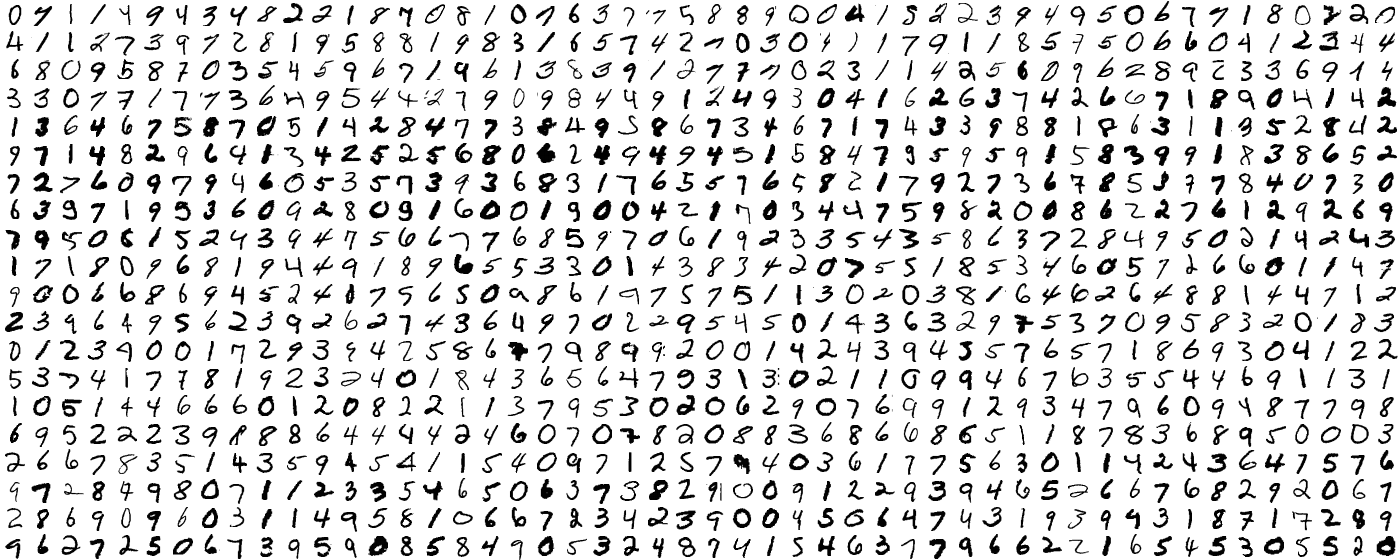 0 7 1 1 4 9 4 3 4 8 2 2 1 8 7 0 8 1 0 7 6 3 7 7 7 5 8 8 9 0 0 4 1 5 2 2 3 9 4 9 5 0 6 7 7 1 8 0 7 2 0
4 1 1 2 7 3 9 7 2 8 1 9 5 8 8 1 9 8 3 1 6 5 7 4 2 7 0 3 0 9 1 1 7 9 1 1 8 5 7 5 0 6 6 0 4 1 2 3 4 4
6 8 0 9 5 8 7 0 3 5 4 5 9 6 7 1 9 6 1 3 8 3 9 1 2 7 7 7 0 2 3 1 1 4 2 5 6 0 9 6 2 8 9 2 3 3 6 9 1 4
3 3 0 7 7 1 7 7 3 6 4 9 5 4 4 2 7 9 0 9 8 4 4 9 1 2 4 9 3 0 4 1 6 2 6 3 7 4 2 6 6 7 1 8 9 0 4 1 4 2
1 3 6 4 6 7 5 8 7 0 5 1 4 2 8 4 7 7 3 8 4 9 5 8 6 7 3 4 6 7 1 7 4 3 3 9 8 8 1 8 6 3 1 1 3 5 2 8 4 2
9 7 1 4 8 2 9 6 4 1 3 4 2 5 2 5 6 8 0 6 2 4 9 4 9 4 5 1 5 8 4 7 9 5 9 5 9 1 5 8 3 9 9 1 8 3 8 6 5 2
7 2 7 6 0 9 7 9 4 6 0 5 3 5 7 3 9 3 6 8 3 1 7 6 5 5 7 6 5 8 2 1 7 9 2 7 3 6 7 8 5 3 7 7 8 4 0 7 3 0
6 3 9 7 1 9 5 3 6 0 9 2 8 0 9 1 6 0 0 1 9 0 0 4 2 1 7 0 3 4 4 7 5 9 8 2 0 0 8 6 2 2 7 6 1 2 9 2 6 9
7 9 5 0 6 1 5 2 4 3 9 4 7 5 6 6 7 7 6 8 5 9 7 0 6 1 9 2 3 3 5 4 3 5 8 6 3 7 2 8 4 9 5 0 2 1 4 2 4 3
1 7 1 8 0 9 6 8 1 9 4 4 9 1 8 9 6 5 5 3 3 0 1 4 3 8 3 4 2 0 7 5 5 1 8 5 3 4 6 0 5 7 2 6 6 0 1 1 4 7
9 0 0 6 6 8 6 9 4 5 2 4 1 7 5 6 5 0 9 8 6 1 9 7 5 7 5 1 1 3 0 2 0 3 8 1 6 4 6 2 6 4 8 8 1 4 4 7 1 2
2 3 9 6 4 9 5 6 2 3 9 2 6 2 7 4 3 6 4 9 7 0 2 2 9 5 4 5 0 1 4 3 6 3 2 9 7 5 3 7 0 9 5 8 3 2 0 1 8 3
0 1 2 3 9 0 0 1 7 2 9 3 9 4 2 5 8 6 7 7 9 8 9 9 2 0 0 1 4 2 4 3 9 4 5 5 7 6 5 7 1 8 6 9 3 0 4 1 2 2
5 3 7 4 1 7 7 8 1 9 2 3 2 4 0 1 8 4 3 6 5 6 4 7 9 3 1 3 0 2 1 1 0 9 9 4 6 7 6 3 5 5 4 4 6 9 1 1 3 1
1 0 5 1 4 4 6 6 6 0 1 2 0 8 2 2 1 1 3 7 9 5 3 0 2 0 6 2 9 0 7 6 9 9 1 2 9 3 4 7 9 6 0 9 4 8 7 7 9 8
6 9 5 2 2 2 3 9 8 8 8 6 4 4 4 4 2 4 6 0 7 0 7 8 2 0 8 8 3 6 8 6 6 8 6 5 1 1 8 7 8 3 6 8 9 5 0 0 0 3
2 6 6 7 8 3 5 1 4 3 5 9 4 5 4 1 1 5 4 0 9 7 1 2 5 7 9 4 0 3 6 1 7 7 5 6 3 0 1 1 4 2 4 3 6 4 7 5 7 6
9 7 2 8 4 9 8 0 7 1 1 2 3 3 5 4 6 5 0 6 3 7 3 8 2 9 0 0 9 1 2 2 9 3 9 4 6 5 2 6 6 7 6 8 2 9 2 0 6 7
2 8 6 9 0 9 6 0 3 1 1 4 9 5 8 1 0 6 6 7 8 3 4 2 3 9 0 0 4 5 0 6 4 7 4 3 1 9 3 9 4 3 1 8 7 1 7 2 8 9
9 6 2 7 2 5 0 6 7 3 9 5 9 0 8 5 8 4 9 0 5 3 2 4 8 7 4 1 5 4 6 3 7 7 9 6 6 2 2 1 6 5 4 5 3 0 5 5 2 0